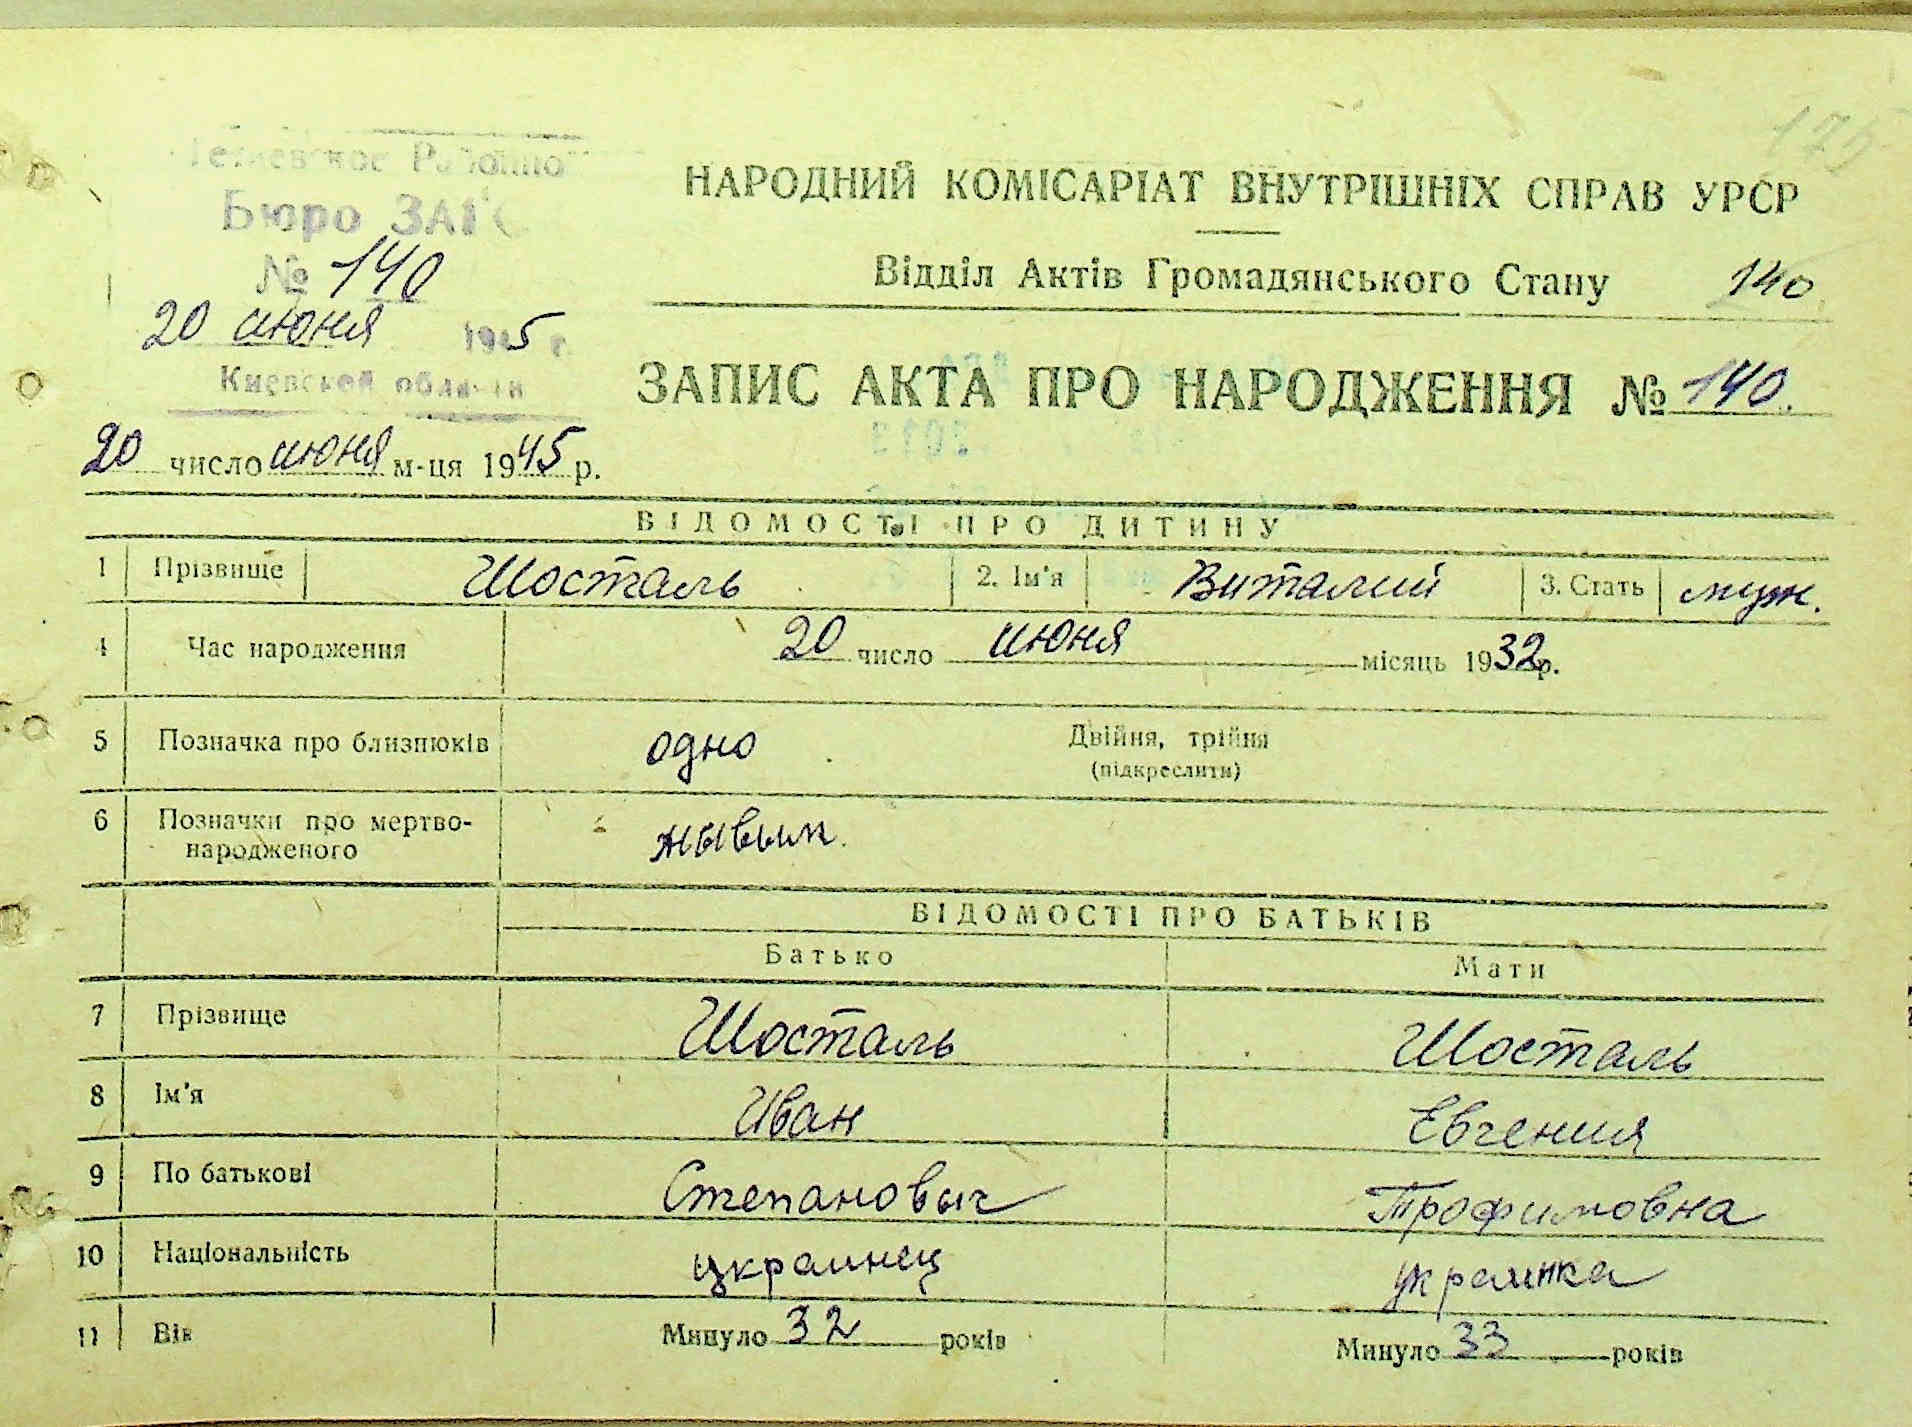 175
Тетиевское Районное
Бюро ЗАГС
№ 140
20 июня 1945 г.
Киевской области
НАРОДНИЙ КОМІСАРІАТ ВНУТРІШНІХ СПРАВ УРСР
Відділ Актів Громадянського Стану 140
ЗАПИС АКТА ПРО НАРОДЖЕННЯ № 140.
20 число июня м-ця 1945 р.
ВІДОМОСТІ ПРО ДИТИНУ
1 Прізвище Шосталь 2. Ім'я Виталий 3. Стать муж.
4 Час народження 20 число июня місяць 1932 р.
5 Позначка про близнюків одно Двійня, трійня
(підкреслити)
6 Позначки про мертво-
народженого жывым.
ВІДОМОСТІ ПРО БАТЬКІВ
Батько Мати
7 Прізвище Шосталь Шосталь
8 Ім'я Иван Евгения
9 По батькові Степановыч Трофимовна
10 Національність украинец украинка
11 Вік Минуло 32 років Минуло 33 років